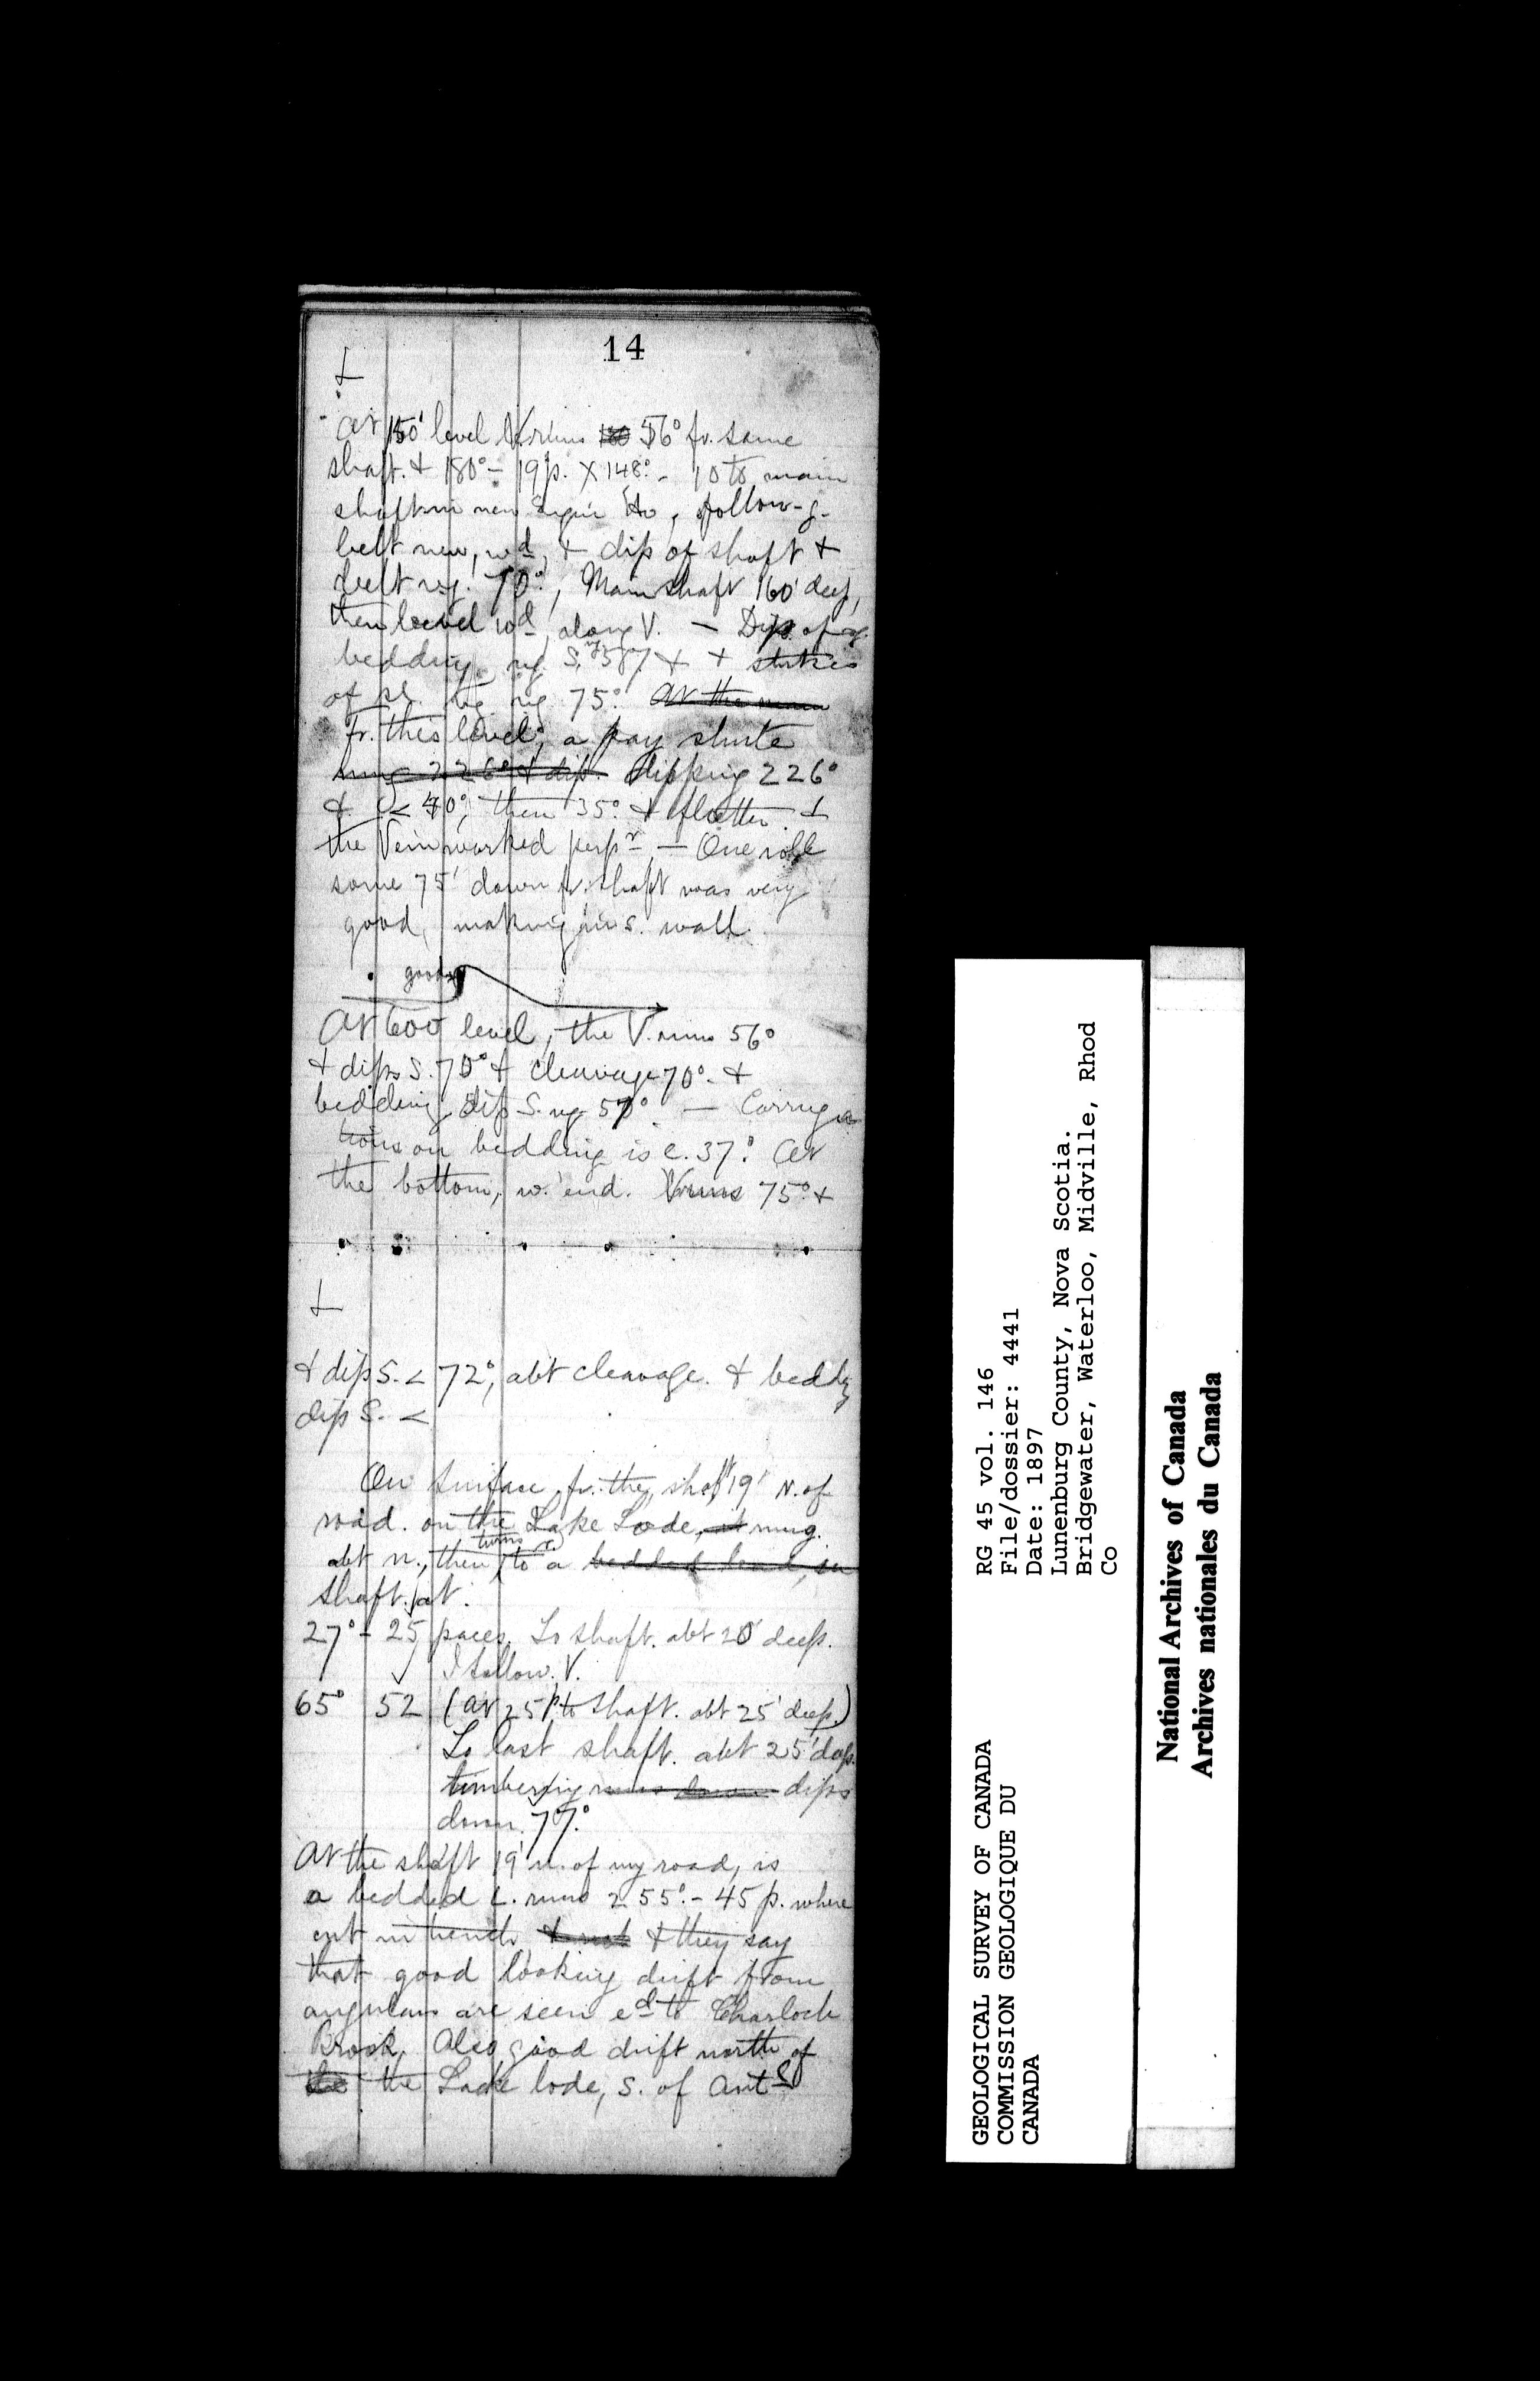 14
At 150' level V runs 56° fr. same
shaft. & 180° - 19p. X 148° - 10 to main
shaft in new Engin Ho, follow-g-
belt new, wd, & dip of shaft &
belt reg. 70°, Main shaft 160' deep,
then level wd, along V. — Dip of
bedding reg S. 57 & + strikes
of sl. reg 75° At the main
fr. this level, a pay shute
runs 226° & dip. dipping 226°
& < 40°, then 35° & flatter &
the Vein worked perpr, — One roll
some 75' down fr. shaft was very
good, making in s. wall.
good
At 600 level, the V. runs 56°
& dips S. 70° & cleavage 70° &
bedding dip S. reg 57° — Corruga
tions on bedding is e. 37° At
the bottom, w. end. V runs 75° &
& dip S. < 72°, abt cleavage. & beddg
dip S. <
On surface fr. the shaft 19' N. of
road. on the Lake Lode, it rung.
abt n., then turns r. to a bedded lead, in
shaft. at.
27° - 25 paces. To shaft. abt 20' deep.
I follow. V.
65° 52 (at 25 p to shaft. abt 25' deep.)
To last shaft. abt 25' deep.
timbering runs down dips
down. 77°
At the shaft 19' n. of my road, is
a bedded L. runs 255° - 45 p. where
cut in trench & not & they say
that good looking drift from
angulars are seen ed to Charloch
Brook. Also good drift north of
the the Lake lode, S. of antl
GEOLOGICAL SURVEY OF CANADA
COMMISSION GEOLOGIQUE DU
CANADA
RG 45 vol. 146
File/dossier: 4441
Date: 1897
Lunenburg County, Nova Scotia.
Bridgewater, Waterloo, Midville, Rhod
Co
National Archives of Canada
Archives nationales du Canada